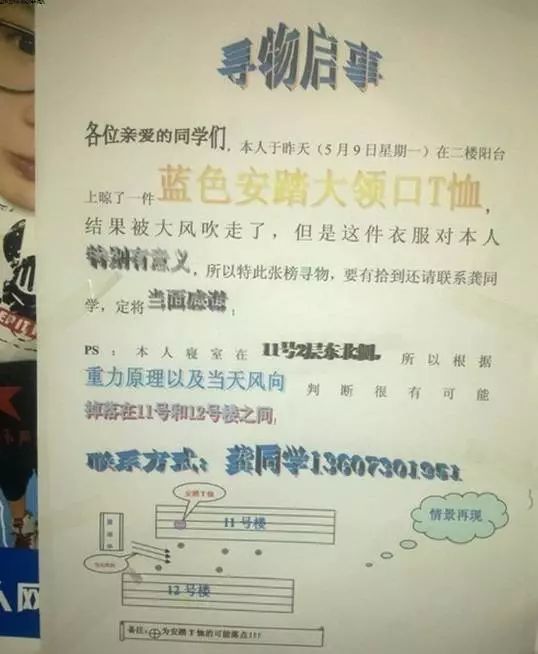 寻物启事
各位亲爱的同学们，本人于昨天（5月9日星期一）在二楼阳台
上晾了一件 蓝色安踏大领口T恤，
结果被大风吹走了，但是这件衣服对本人
特别有意义，所以特此张榜寻物，要有拾到还请联系龚同
学，定将当面感谢；
PS：本人寝室在11号2层东北侧。所以根据
重力原理以及当天风向 判断很有可能
掉落在11号和12号楼之间，
联系方式：龚同学13607301951
安踏T恤
11号楼
情景再现
12号楼
备注：为安踏T恤的可能落点!!!
人网